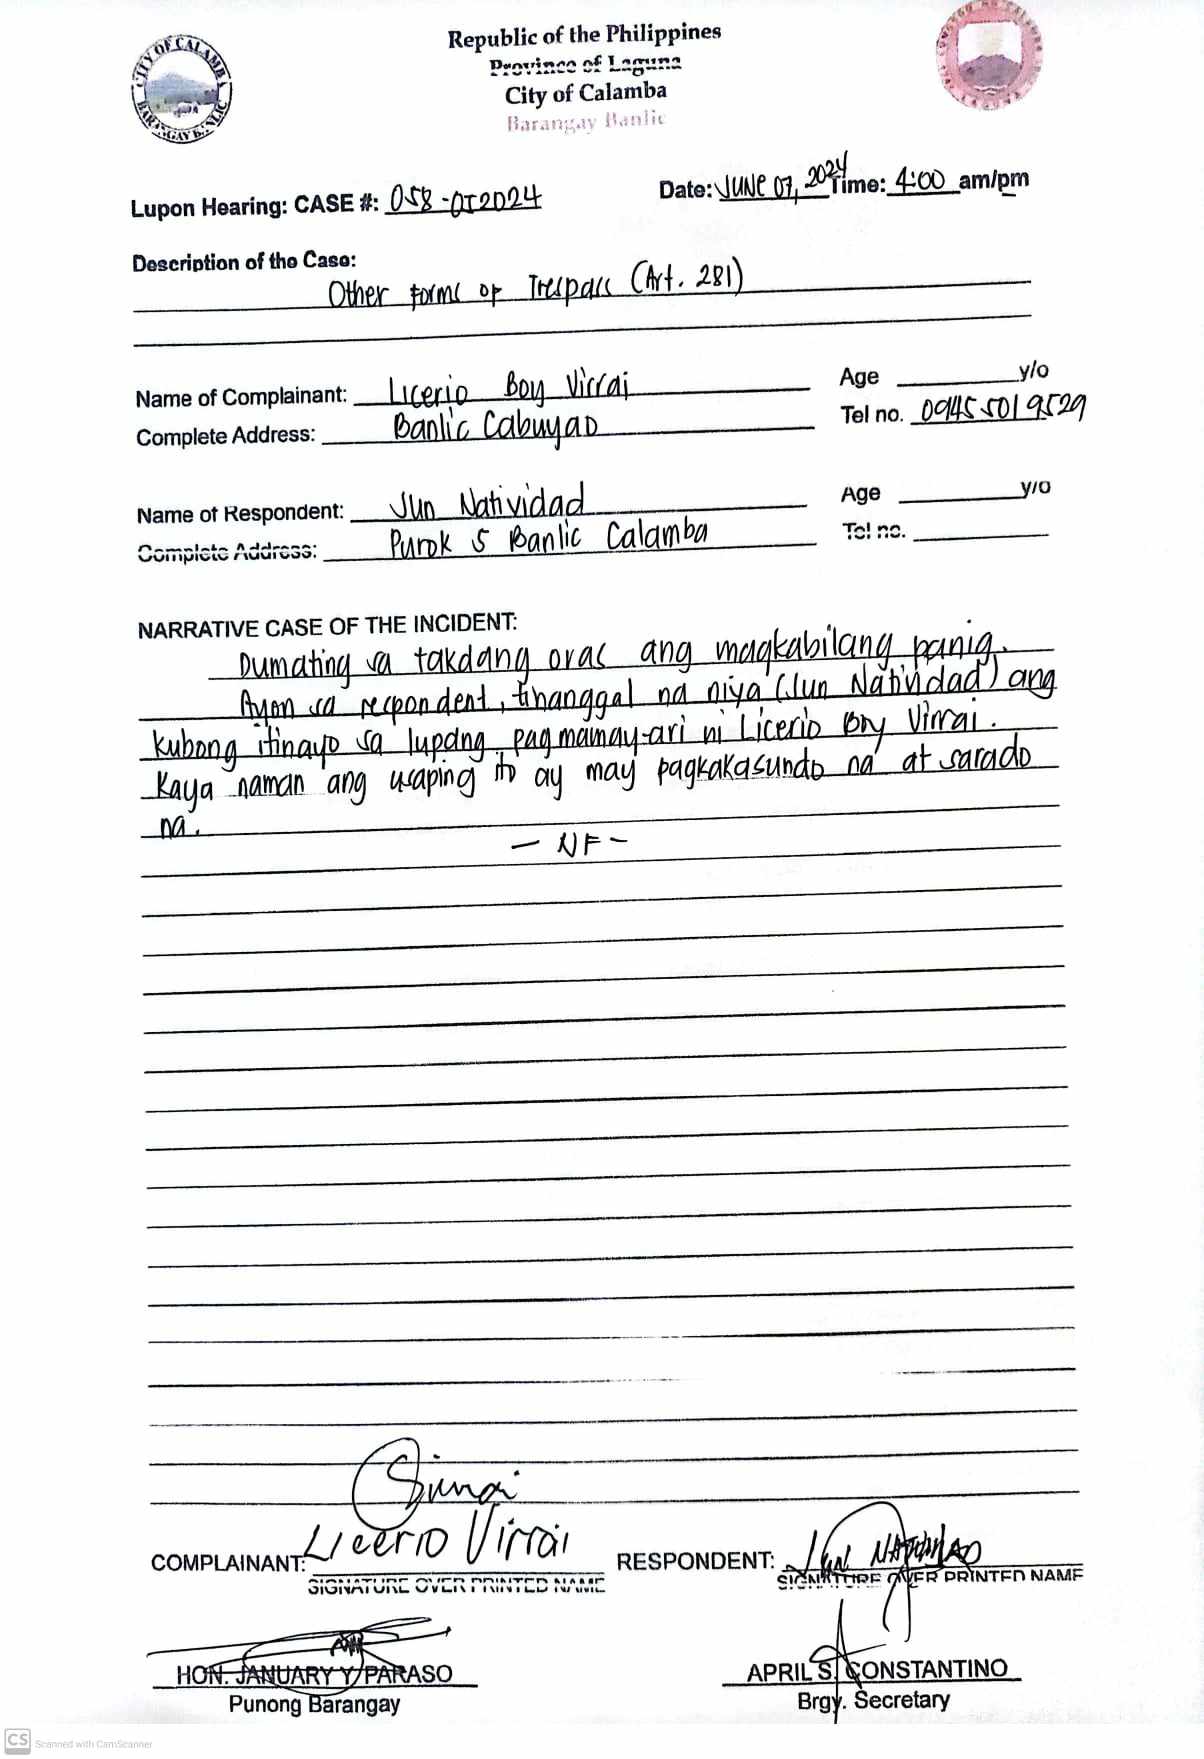 CITY OF CALAMBA
BARANGAY BANLIC
Republic of the Philippines
Province of Laguna
City of Calamba
Barangay Banlic
LAGUNA
Date: JUNE 07, 2024 Time: 4:00 am/pm
Lupon Hearing: CASE #: 058-052024
Description of the Case:
Other forms of Trespass (Art. 281)
Name of Complainant: Licerio Boy Virrai Age y/o
Complete Address: Banlic Cabuyao Tel no. 09455019529
Name of Respondent: Jun Natividad Age y/o
Complete Address: Purok 5 Banlic Calamba Tel no.
NARRATIVE CASE OF THE INCIDENT:
Dumating sa takdang oras ang magkabilang panig.
Ayon sa respondent, tinanggal na niya (Jun Natividad) ang
kubong itinayo sa lupang pagmamay-ari ni Licerio Boy Virrai.
Kaya naman ang usaping ito ay may pagkakasundo na at sarado
na.
- NF -
Licerio Virrai
COMPLAINANT: RESPONDENT: JUN NATIVIDAD
SIGNATURE OVER PRINTED NAME SIGNATURE OVER PRINTED NAME
HON. JANUARY Y PARASO APRIL S. CONSTANTINO
Punong Barangay Brgy. Secretary
CS Scanned with CamScanner